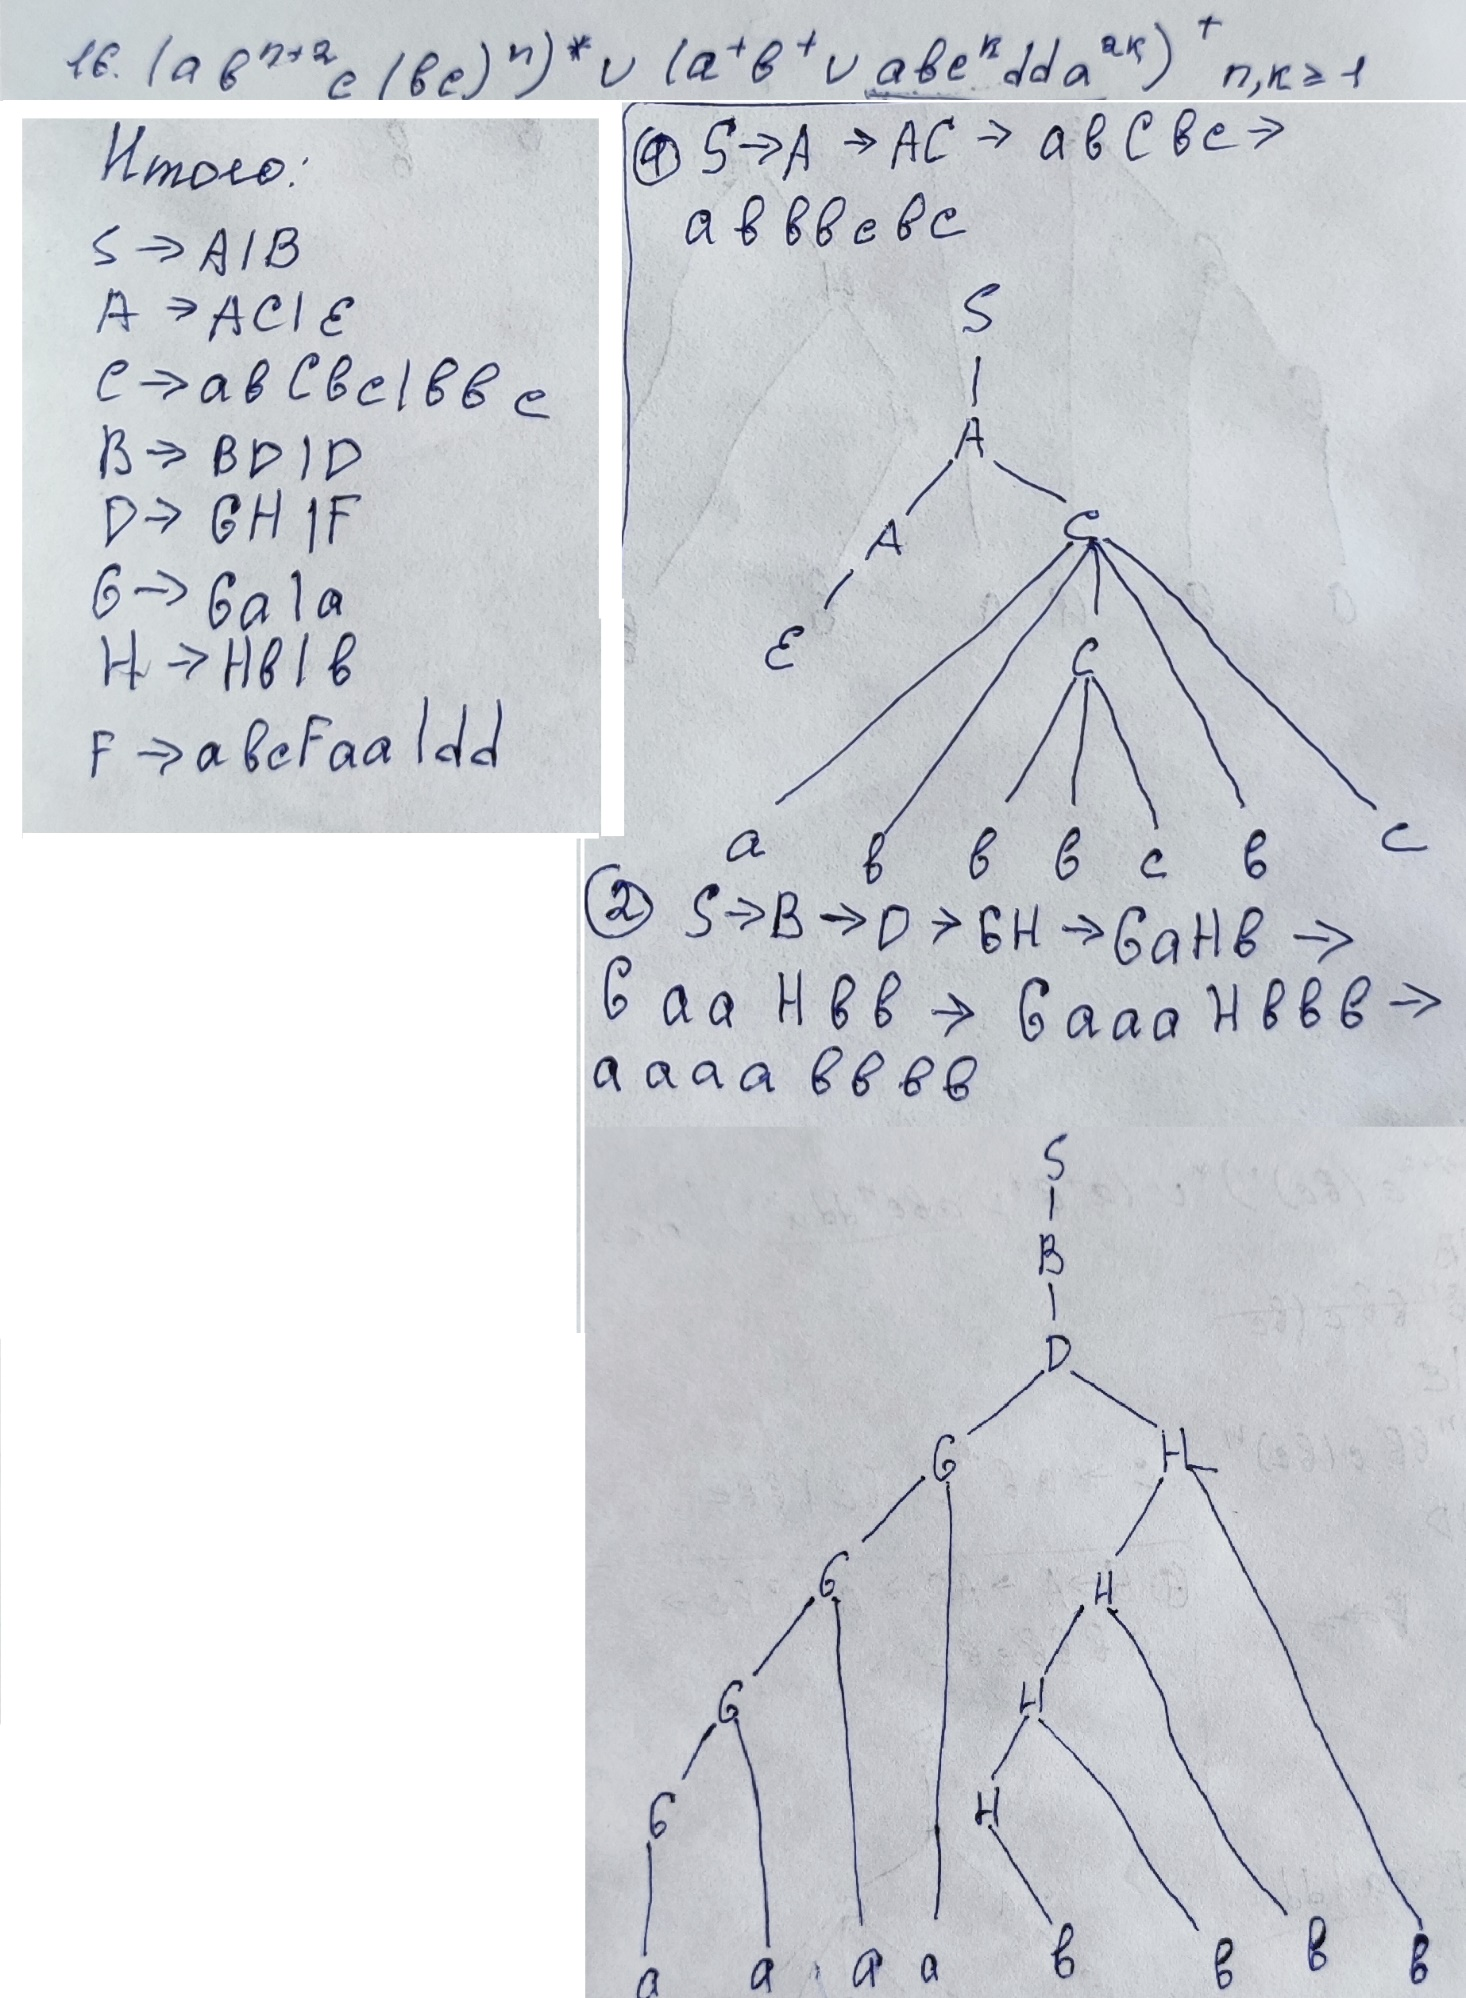 16. (a b^{n+2} c (bc)^n)^* ∪ (a^+ b^+ ∪ abc^k dda^{2k})^+ n,k ≥ 1
Итого:
S → A|B
A → AC|ε
C → abCbc|bbc
B → BD|D
D → GH|F
G → Ga|a
H → Hb|b
F → abcFaa|dd
① S → A → AC → abCbc →
abbbcbc
S
A
A C
ε C
a b b b c b c
② S → B → D → GH → GaHb →
GaaHbb → GaaaHbbb →
aaaabbbb
S
B
D
G H
G H
G H
G H
a a a a b b b b